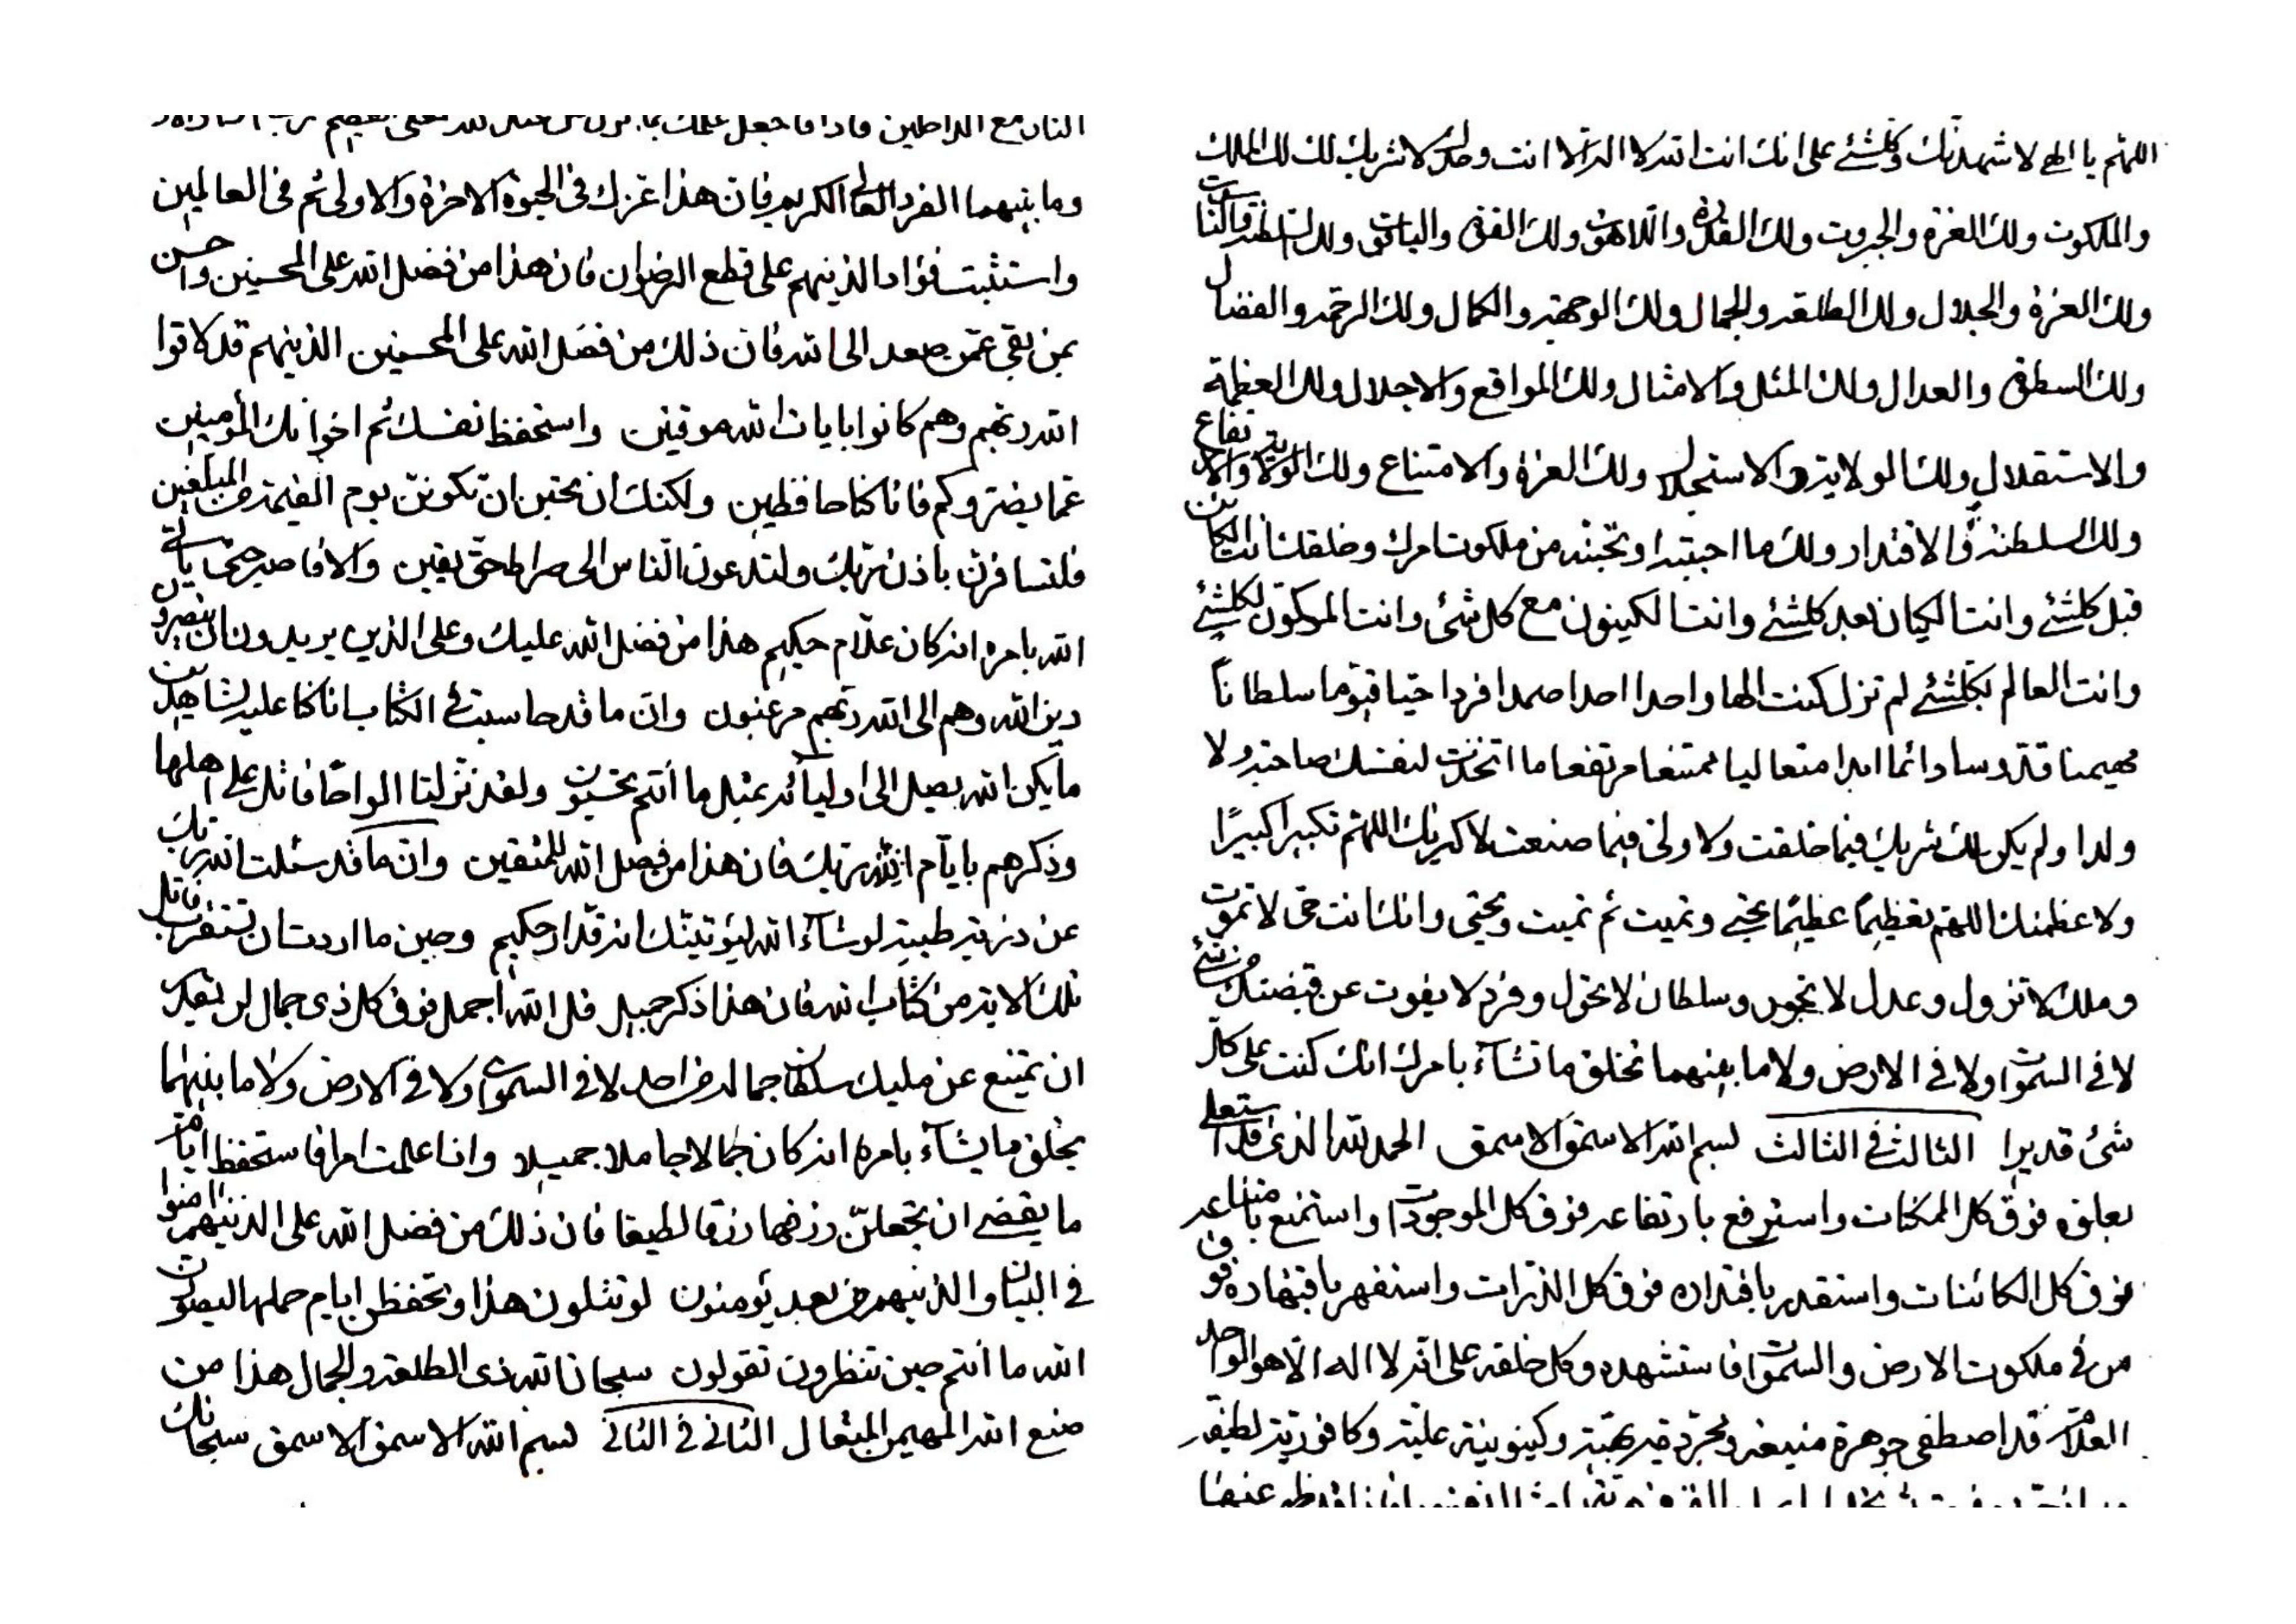 وما بينهما الفرد العالى الكريم فان هذا عز لك فى الحيوة الاخرة والاولى ثم فى العالمين
واستثبت فؤاد الذينهم على قطع الرضوان فان هذا من فضل الله على المحسنين واحسن
بمن بقى عمن صعد الى الله فان ذلك من فضل الله على المحسنين الذينهم قد لاقوا
الله ربهم وهم كانوا بايات الله موقنين واستحفظ نفسك ثم اخوانك المؤمنين
عما يضروكم فانا كنا حافظين ولكنك ان تحبن ان تكونن يوم القيمة من المبلغين
فلتسافرن باذن ربك ولتدعون الناس الى صراط حق يقين والا فاصبر حتى ياتى
الله بامره انه كان علام حكيم هذا من فضل الله عليك وعلى الذين يريدون ان ينصرون
دين الله وهم الى الله ربهم مرغبون وان ما قد حاسبت فى الكتاب انا كنا عليه لشاهدين
ما يكن الله يصيل الى اوليائه بمثل ما انتم تحسبون ولقد نزلنا الواحا فاتل على اهلها
وذكرهم بايام الله ربك فان هذا من فضل الله للمتقين وان ما قد سئلت الله ربك
عن ذرية طيبة لو شاء الله ليؤتينك انه قدار حكيم وحين ما اردت ان تستقرب فاتل
تلك الاية من كتاب الله فان هذا ذكر جميل قل الله اجمل فوق كل ذى جمال لن يقدر
ان يمتنع عن مليك سلطان جماله من احد لا فى السموات ولا فى الارض ولا ما بينهما
يخلق ما يشاء بامره انه كان جمالا جاملا جميلا واذا علمت امرا فاستحفظ ايام
ما يقضى ان تجعلن رزقها رزقا لطيفا فان ذلك من فضل الله على الذينهم امنوا
فى البيان والذينهم من بعد يؤمنون لو تتلون هذا وتحفظن ايام حملها ليصورن
الله ما انتم حين تنظرون تقولون سبحان الله ذى الطلعة والجمال هذا من
صنع الله المهيمن المتعال الثانى فى الثانى بسم الله الاسمق الاسمق سبحانك
اللهم يا الهى لاشهدنك وكلشئ على انك انت الله لا اله الا انت وحدك لا شريك لك لك الملك
والملكوت ولك العزة والجبروت ولك القدرة واللاهوت ولك القوة والياقوت ولك السلطنة والناسوت
ولك العزة والجلال ولك الطلعة والجمال ولك الوجهة والكمال ولك الرحمة والفضال
ولك السطوة والعدال ولك المثل والامثال ولك المواقع والاجلال ولك العظمة
والاستقلال ولك الولاية والاستجلال ولك العزة والامتناع ولك الولاية والارتفاع
ولك السلطنة والاقتدار ولك ما احببته او تحبنه من ملكوت امرك وخلقك انت الكائن
قبل كلشئ وانت الكيان بعد كلشئ وانت الكينون مع كل شئ وانت المكون لكلشئ
وانت العالم بكلشئ لم تزل كنت الها واحدا احدا صمدا فردا حيا قيوما سلطانا
مهيمنا قدوسا دائما ابدا متعاليا ممتنعا مرتفعا ما اتخذت لنفسك صاحبة ولا
ولدا ولم يكن لك شريك فيما خلقت ولا ولى فيما صنعت لاكبرنك اللهم تكبيرا كبيرا
ولاعظمنك اللهم تعظيما عظيما تحيى وتميت ثم تميت وتحيى وانك انت حى لا تموت
وملك لا تزول وعدل لا تجور وسلطان لا تحول وفرد لا يفوت عن قبضتك من شئ
لا فى السموات ولا فى الارض ولا ما بينهما تخلق ما تشاء بامرك انك كنت على كل
شئ قديرا الثالث فى الثالث بسم الله الاسمق الاسمق الحمد لله الذى قد استعلى
بعلوه فوق كل الممكنات واسترفع بارتفاعه فوق كل الموجودات واستمنع بامتناعه
فوق كل الكائنات واستقدر باقتداره فوق كل الذرات واستقهر باقتهاره فوق
من فى ملكوت الارض والسموات فاستشهده وكل خلقه على انه لا اله الا هو الواحد
العلام قد اصطفى جوهرة منيعة ومجردة بهية وكينونية علية وكافورية لطيفة